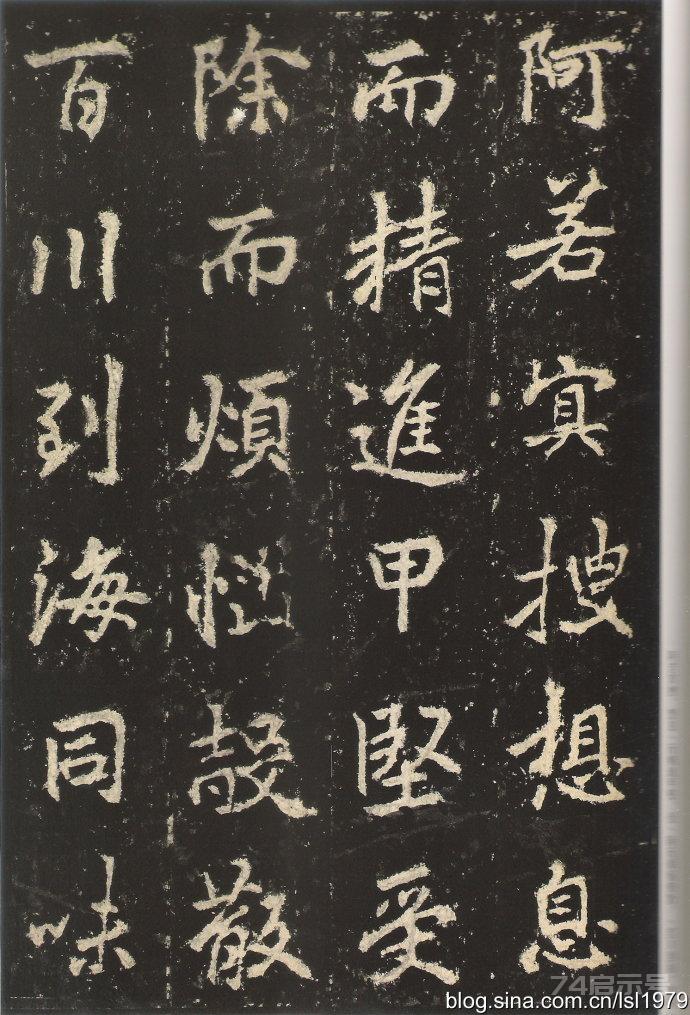 阿若冥搜想息
而精進甲堅受
除而煩惱殼散
百川到海同味
74启示号
blog.sina.com.cn/lsl1979